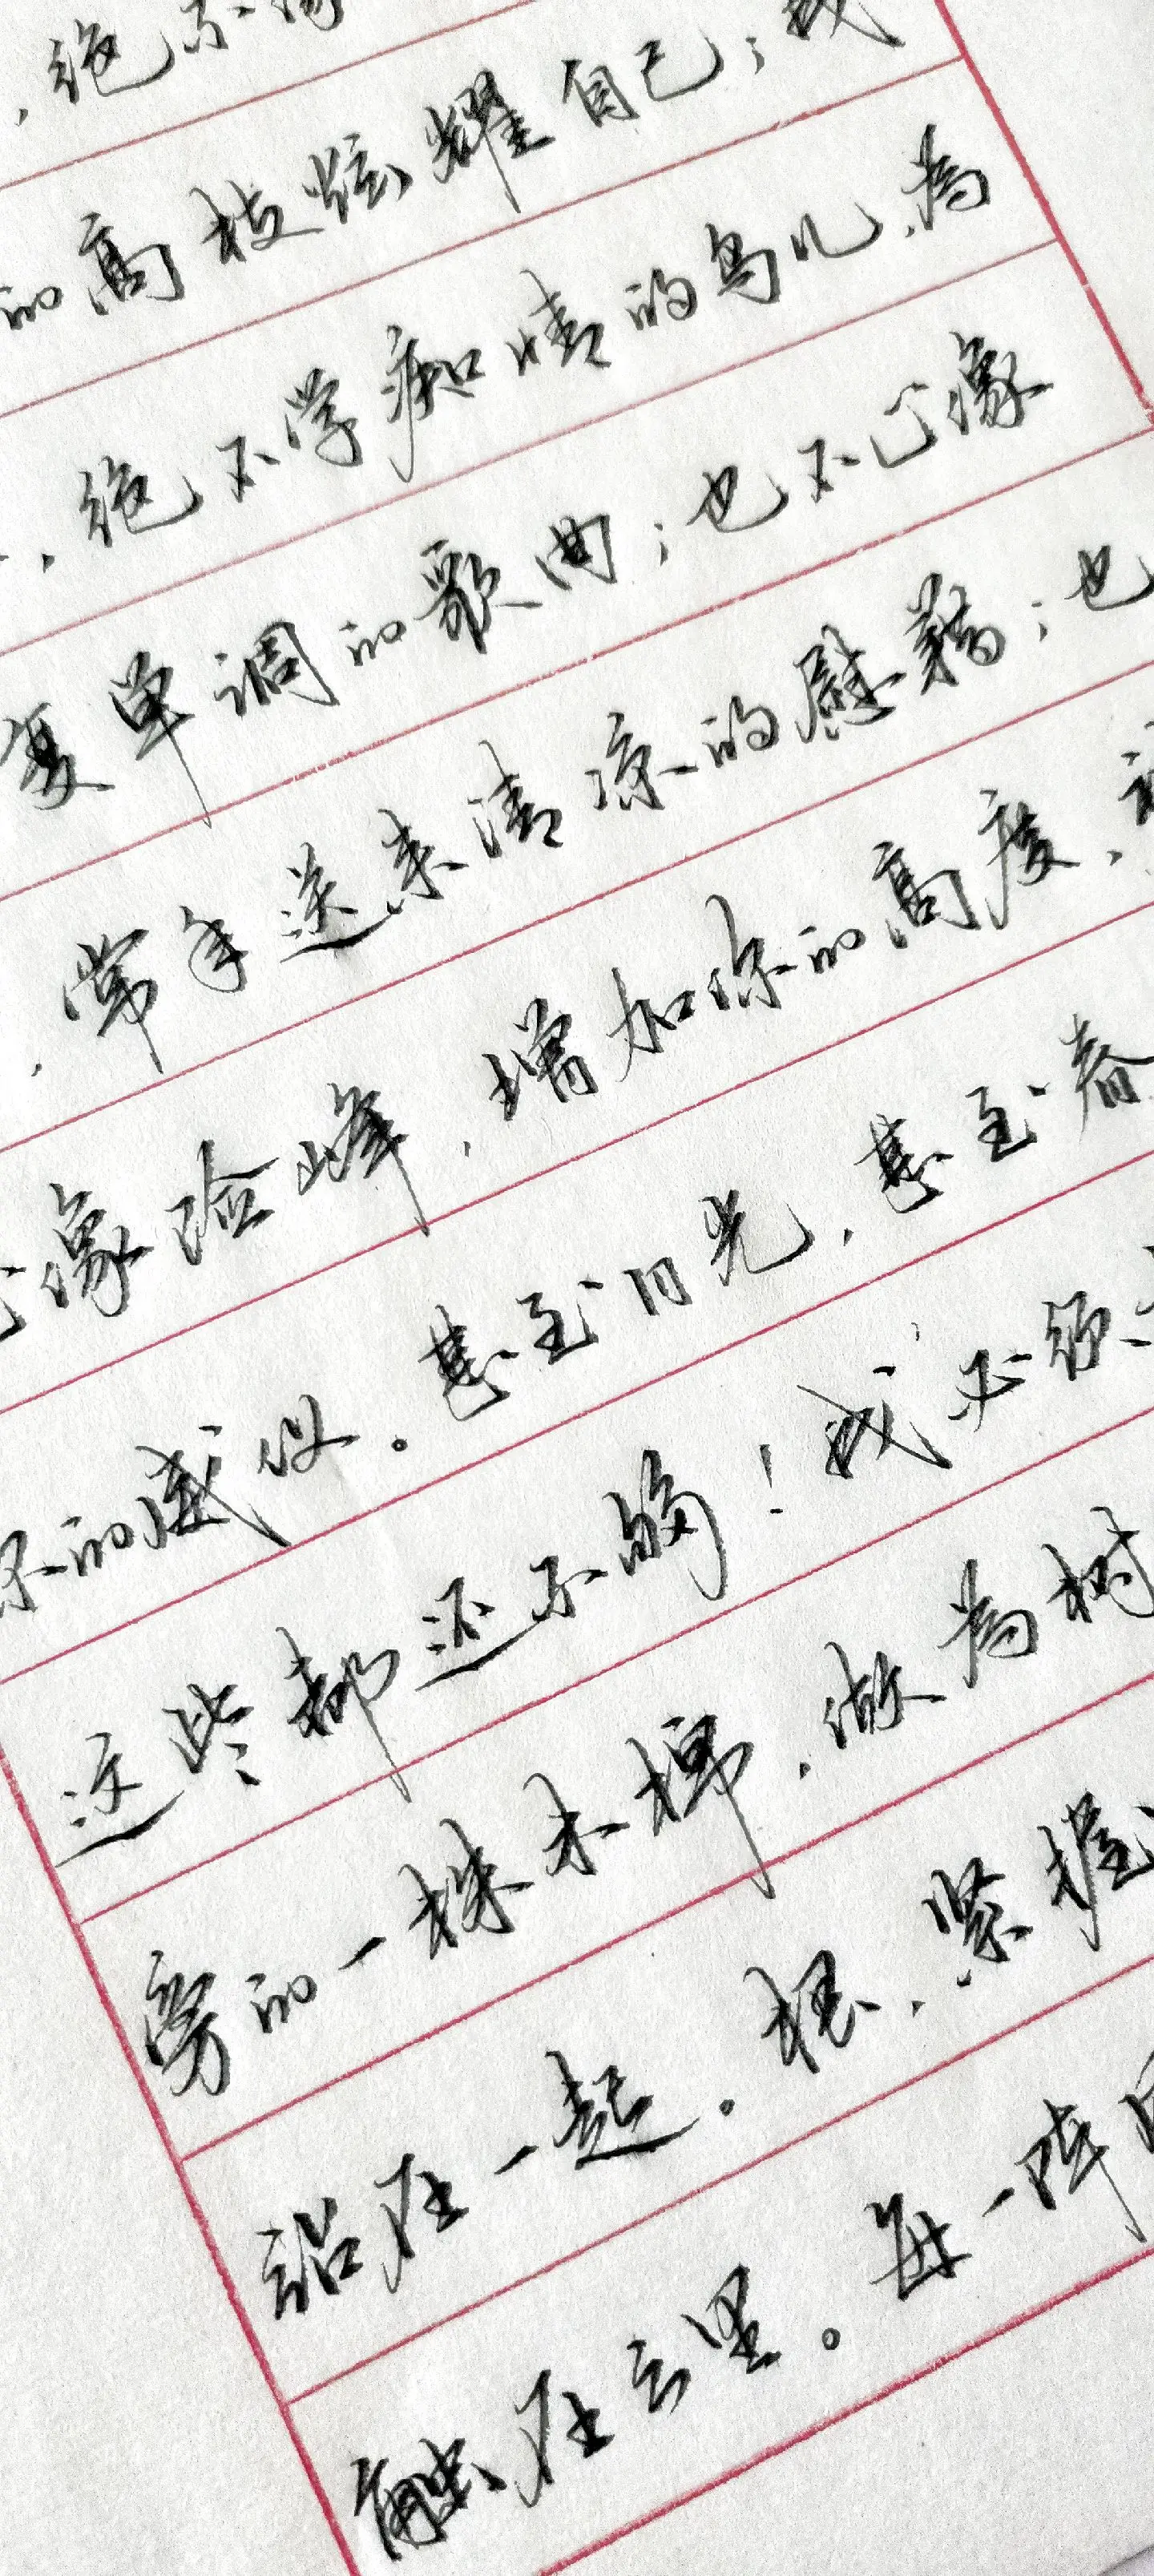 ，绝不像
的高枝炫耀自己；我
，绝不学痴情的鸟儿，为
复单调的歌曲；也不止像
，常年送来清凉的慰藉；也
止像险峰，增加你的高度，衬
你的威仪。甚至日光，甚至春
这些都还不够！我必须
旁的一株木棉，做为树
站在一起。根，紧握
触在云里。每一阵风